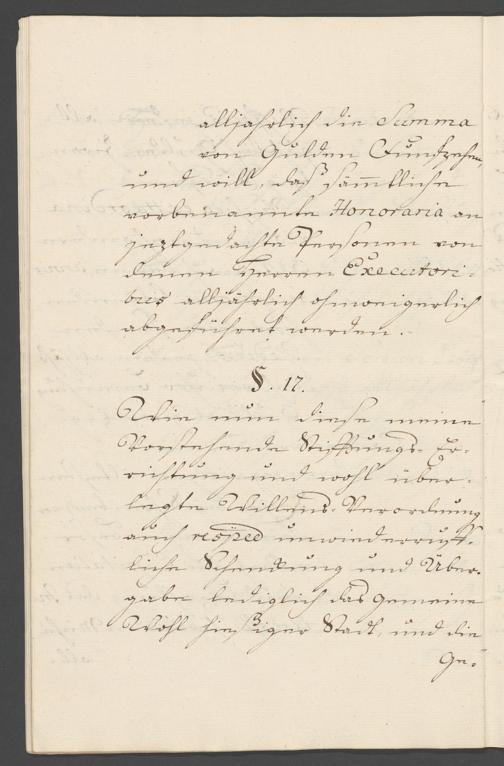 alljährlich die Summa
von Gulden Fünfzehen,
und will, daß sämtliche
vorbenannte Honoraria an
jeztgedachte Personen von
denen Herren Executori-
bus alljährlich ohnweigerlich
abgeführt werden.
§. 17.
Wie nun diese meine
Vorstehende Stiftungs-Er-
richtung und wohl über-
legte Willens-Verordnung
auch resped unwiederruf-
liche Schenkung und Über-
gabe lediglich das gemeine
Wohl hießiger Stadt, und die
Ge-